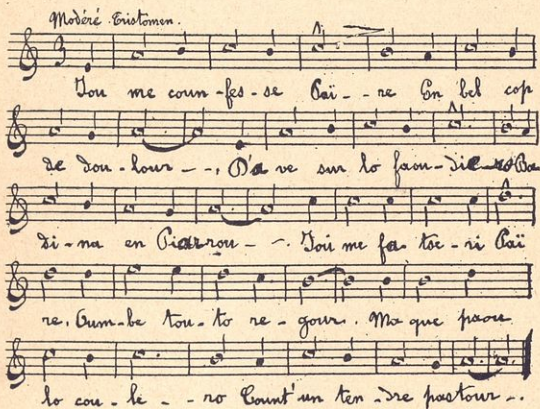 Modéré. Tristomen.
Iou me coun-fes-se Païre En bel cop
de dou-lour - -, D'a ve sur lo faou-di
di-na en - . Ioü me fa- Païre
re, Tum-be tou-to re-gour. Ma que paou
lo cou-lè- -ro Count'un ten-dre pastour -.